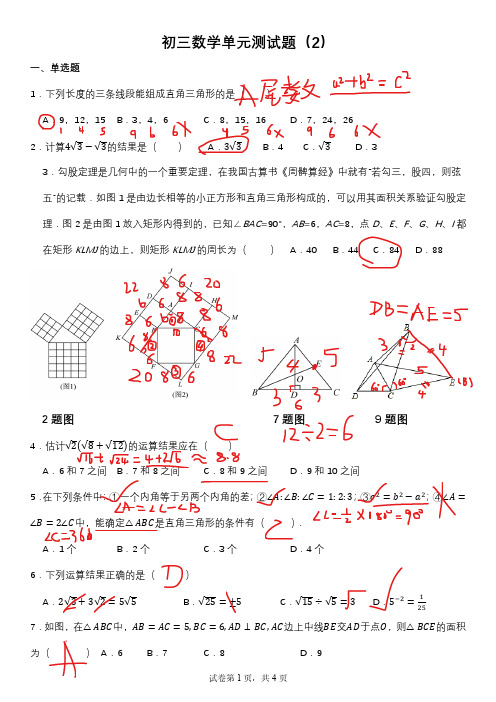 初三数学单元测试题（2）
一、单选题
1．下列长度的三条线段能组成直角三角形的是 A 尾数 a²+b²=c²
A．9，12，15 B．3，4，6 C．8，15，16 D．7，24，26
1 4 5 9 6 6X 4 5 6X 9 6 6X
2．计算4√3−√3的结果是（ ） A．3√3 B．4 C．√3 D．3
3．勾股定理是几何中的一个重要定理，在我国古算书《周髀算经》中就有"若勾三，股四，则弦
五"的记载．如图 1 是由边长相等的小正方形和直角三角形构成的，可以用其面积关系验证勾股定
理．图 2 是由图 1 放入矩形内得到的，已知∠BAC=90°，AB=6，AC=8，点 D、E、F、G、H、I 都
在矩形 KLMJ 的边上，则矩形 KLMJ 的周长为（ ） A．40 B．44 C．84 D．88
DB=AE=5
(图1)
(图2)
2题图 7题图 9题图
12÷2=6
4．估计√2(√8+√12)的运算结果应在（ C ）
√16+√24=4+2√6≈8.8
A．6 和 7 之间 B．7 和 8 之间 C．8 和 9 之间 D．9 和 10 之间
5．在下列条件中: ①一个内角等于另两个内角的差; ②∠A:∠B:∠C=1:2:3; ③c²=b²−a²; ④∠A=
∠A=∠C−∠B
∠B=2∠C中，能确定△ABC是直角三角形的条件有（ ）．
∠C=½×180°=90°
∠C=36
A．1 个 B．2 个 C．3 个 D．4 个
6．下列运算结果正确的是（ D ）
A．2√3+3√2=5√5 B．√25=±5 C．√15÷√5=3 D．5⁻²=1/25
7．如图，在△ABC中，AB=AC=5,BC=6,AD⊥BC,AC边上中线BE交AD于点O，则△BCE的面积
为（ A ） A．6 B．7 C．8 D．9
试卷第 1 页，共 4 页